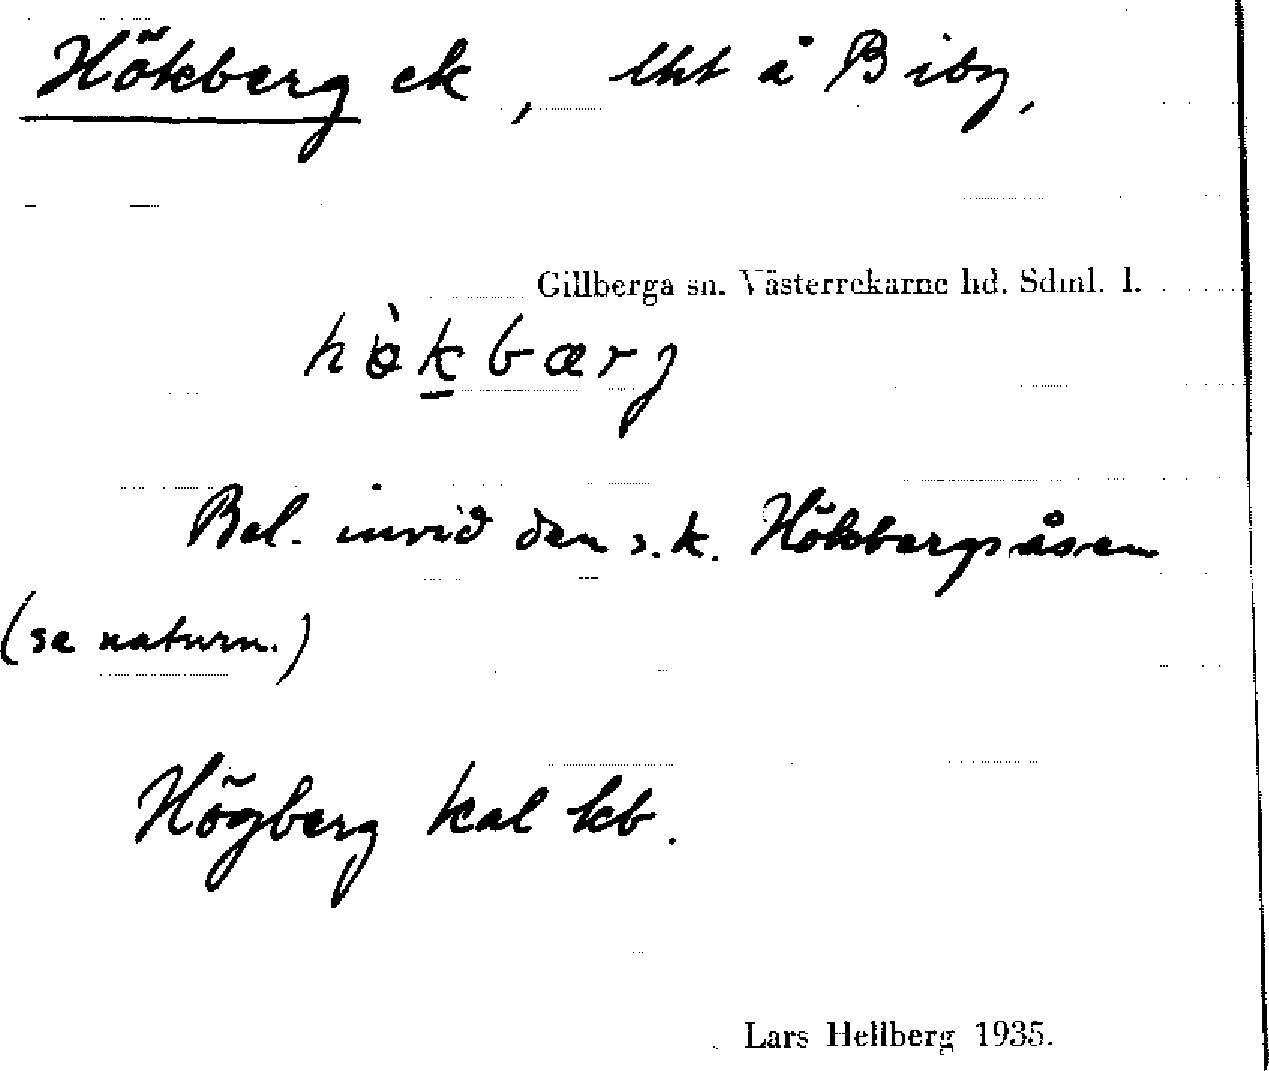 Hökberg ek, lht å Biby,
Gillberga sn. Västerrekarne hd. Sdml. l.
hö̀k̲bærj
Bel. invid den s.k. Hökbergsåsen
(se naturn.)
Högberg kal kb.
Lars Hellberg 1935.